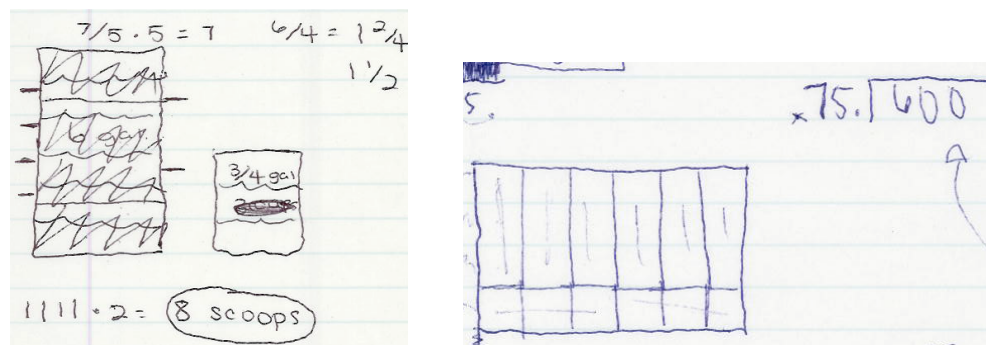 7/5 · 5 = 7
6/4 = 1 2/4
1 1/2
6 gal
3/4 gal
1111 · 2 = 8 scoops
5.
x .75.⟌600